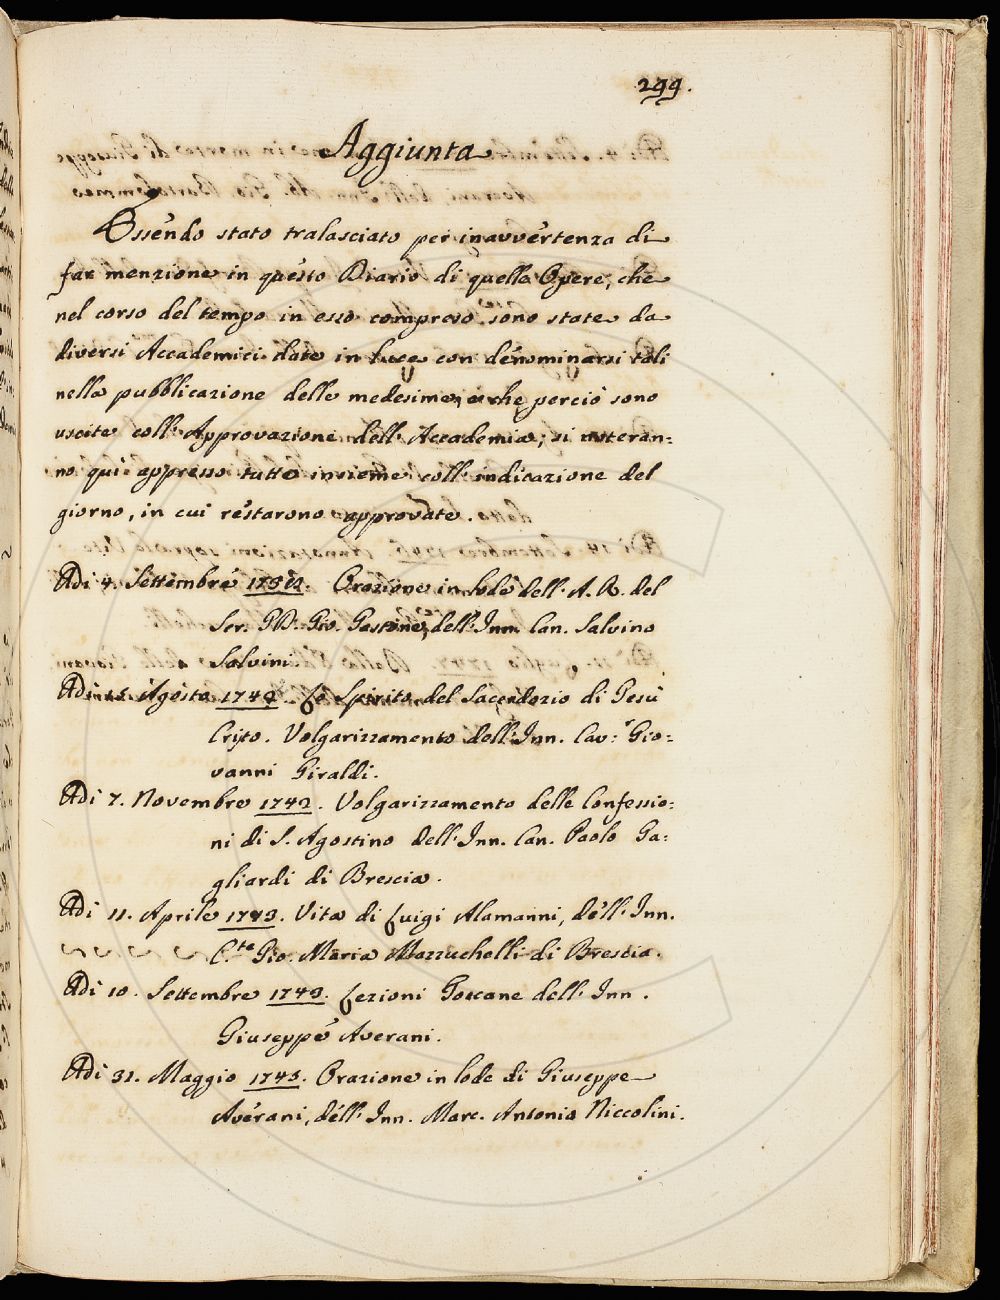 299.
Aggiunta
Essendo stato tralasciato per inavvertenza di
far menzione in questo Diario di quelle Opere, che
nel corso del tempo in esso compreso sono state da
diversi Accademici date in luce con denominarsi tali
nella pubblicazione delle medesime, e che perciò sono
uscite coll' Approvazione dell' Accademia; si noteran=
no qui appresso tutte insieme coll' indicazione del
giorno, in cui restarono approvate.
Adi 4. Settembre Orazione in lode dell' A. R. del
Ser. GD. Gio. Gastone, dell' Inn. Can. Salvino
Salvini.
Adi Agosto Lo Spirito del Sacerdozio di Gesù
Cristo. Volgarizzamento dell' Inn. Cav: Gio=
vanni Giraldi.
Adi 7. Novembre 1742. Volgarizzamento delle Confessio=
ni di S. Agostino dell' Inn. Can. Paolo Ga=
gliardi di Brescia.
Adi 11. Aprile 1743. Vita di Luigi Alamanni, dell' Inn.
C.te Gio. Maria Mazzuchelli di Brescia.
Adi 10. Settembre 1743. Lezioni Toscane dell' Inn.
Giuseppe Averani.
Adi 31. Maggio 1745. Orazione in lode di Giuseppe
Averani, dell' Inn. Marc. Antonio Niccolini.